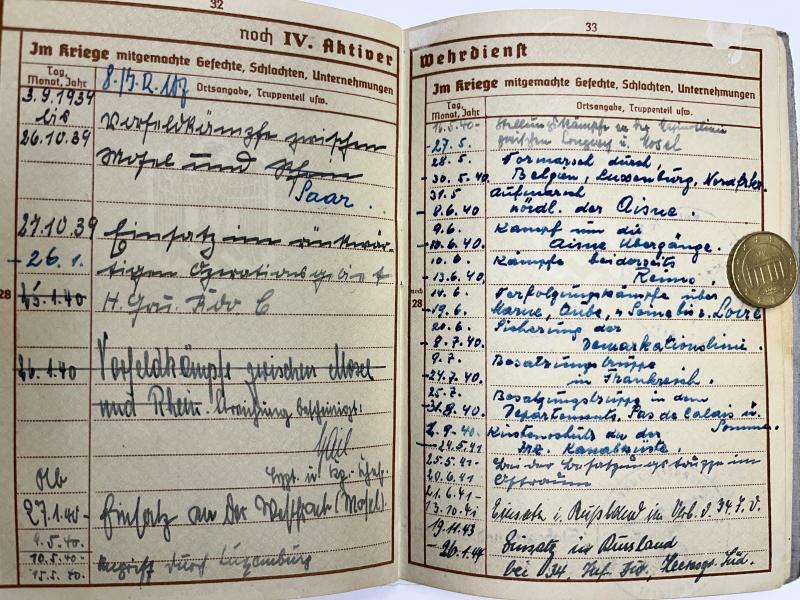 32
noch IV. Aktiver
Im Kriege mitgemachte Gefechte, Schlachten, Unternehmungen
Tag, Monat, Jahr
Ortsangabe, Truppenteil usw.
3.9.1939
bis
26.10.39
Vorfeldkämpfe zwischen
Mosel und Rhein
Saar.
27.10.39
- 26.1.
15.1.40
Einsatz im rückwär-
tigen Operationsgebiet
H. Gru. Kdo C
28
26.1.40
Vorfeldkämpfe zwischen Mosel
und Rhein. Streichung bescheinigt.
Hptm. u. Kp. Chef.
27.1.40-
9.5.40.
Einsatz an der Westfront (Mosel)
10.5.40-
15.5.40.
Angriff durch Luxemburg
33
Wehrdienst
Im Kriege mitgemachte Gefechte, Schlachten, Unternehmungen
Tag, Monat, Jahr
Ortsangabe, Truppenteil usw.
16.5.40-
- 27.5.
Stellungskämpfe in der
zwischen Longwy u. Mosel
28.5.
- 30.5.40.
Vormarsch durch
Belgien, Luxemburg, Nordfrkr.
31.5
- 8.6.40
Aufmarsch
nördl. der Aisne.
9.6.
- 10.6.40.
Kampf um die
Aisne Übergänge.
10.6.
- 13.6.40.
Kämpfe beiderseits
Reims,
noch
28
14.6.
- 19.6.
Verfolgungskämpfe über
Marne, Aube, Seine bis z. Loire
20.6.
- 8.7.40
Sicherung der
Demarkationslinie.
9.7.
- 24.7.40.
Besatzungstruppe
in Frankreich.
25.7.
- 31.8.40.
Besatzungstruppe in dem
Departements, Pas de Calais u. Somme.
1.9.40-
- 24.5.41
Küstenschutz an der
frz. Kanalküste.
25.5.41-
20.6.41
Bei der Besatzungstruppe im
Ostraum
21.6.41-
13.10.41
Einsatz i. Rußland im Verb. d. 34. I. D.
19.11.43
- 26.1.44
Einsatz in Rußland
bei 34. Inf. Div., Heeresgr. Süd.